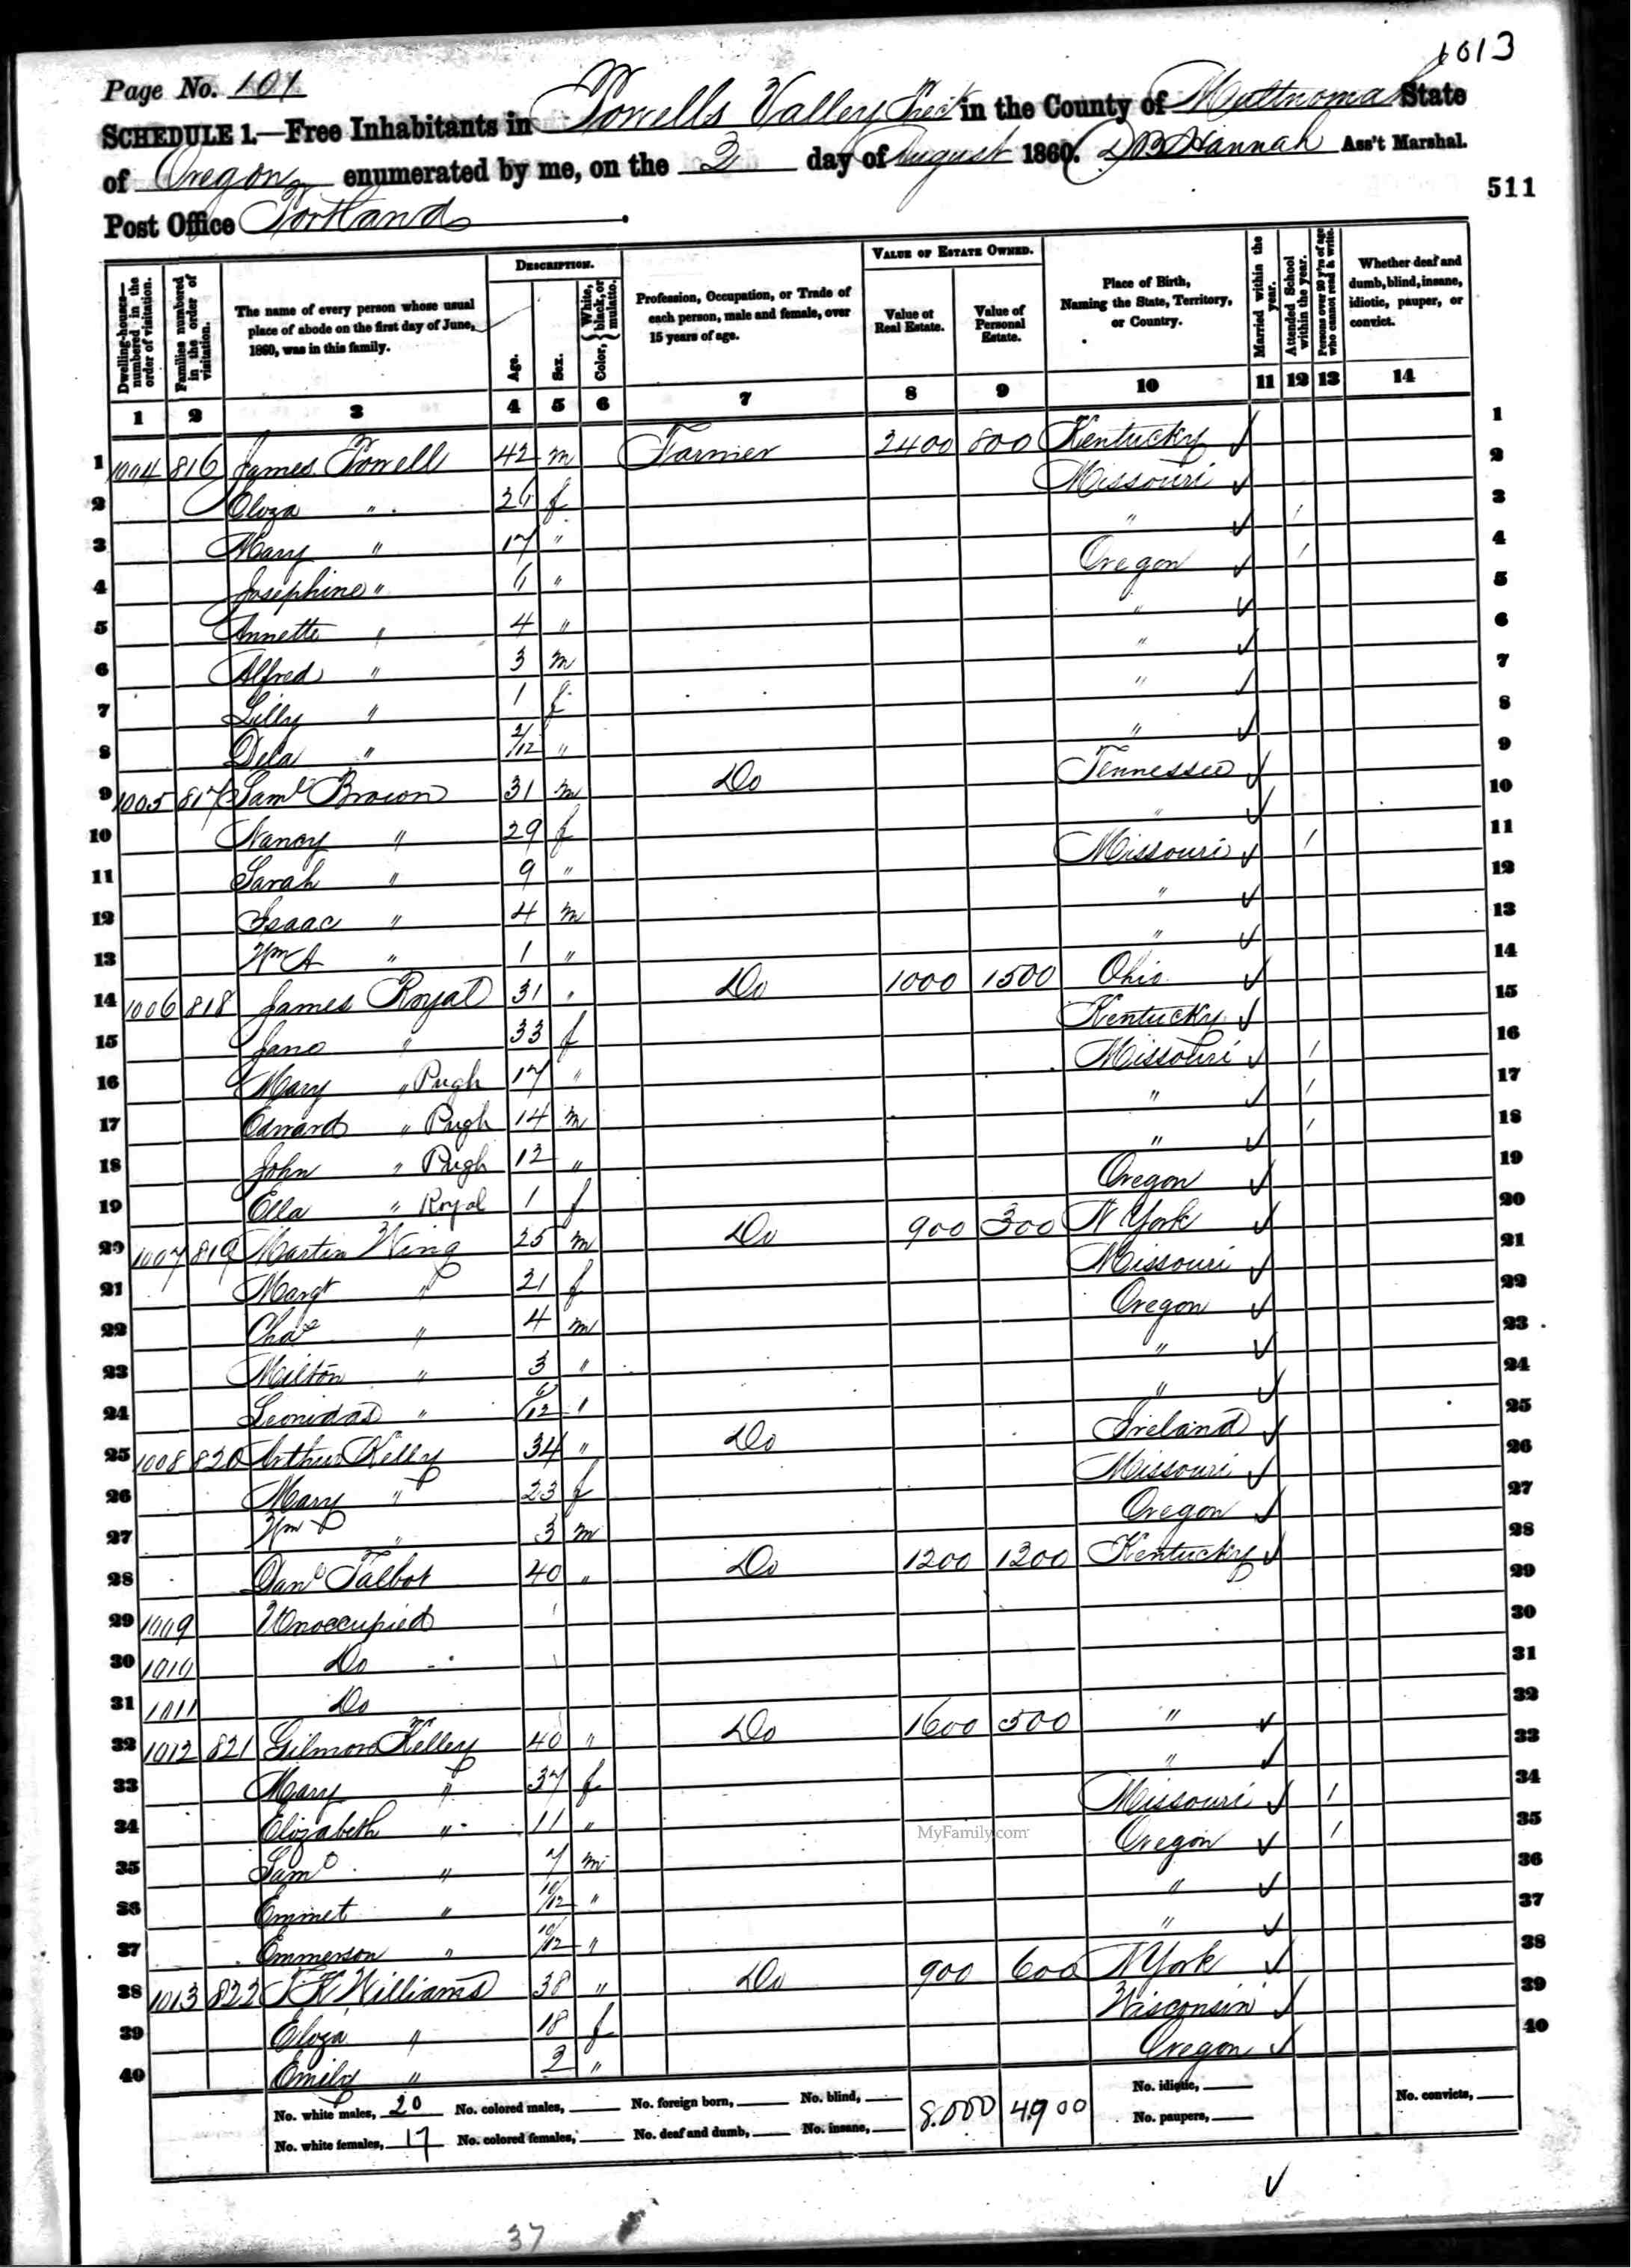 1013
Page No. 101
SCHEDULE 1.—Free Inhabitants in Powells Valley Prect in the County of Multnomah State
of Oregon enumerated by me, on the 3 day of August 1860. Hannah Ass't Marshal.
511
Post Office Portland.
Dwelling-houses—numbered in the order of visitation.
Families numbered in the order of visitation.
The name of every person whose usual place of abode on the first day of June, 1860, was in this family.
DESCRIPTION.
Age.
Sex.
Color, { White, black, or mulatto. }
Profession, Occupation, or Trade of each person, male and female, over 15 years of age.
VALUE OF ESTATE OWNED.
Value of Real Estate.
Value of Personal Estate.
Place of Birth, Naming the State, Territory, or Country.
Married within the year.
Attended School within the year.
Persons over 20 y'rs of age who cannot read & write.
Whether deaf and dumb, blind, insane, idiotic, pauper, or convict.
1 2 3 4 5 6 7 8 9 10 11 12 13 14
1 1004 816 James Powell 42 m Farmer 2400 800 Kentucky ✓ 1
2 Eliza " 26 f Missouri ✓ 2
3 Mary " 17 " " ✓ / 3
4 Josephine " 6 " Oregon ✓ / 4
5 Annette " 4 " " ✓ 5
6 Alfred " 3 m " ✓ 6
7 Lilly " 1 f " ✓ 7
8 Dela " 2/12 " " ✓ 8
9 1005 817 Saml Brown 31 m Do Tennessee ✓ 9
10 Nancy " 29 f " ✓ 10
11 Sarah " 9 " Missouri ✓ / 11
12 Isaac " 4 m " ✓ 12
13 Wm A " 1 " " ✓ 13
14 1006 818 James Royal 31 " Do 1000 1500 Ohio ✓ 14
15 Jane " 33 f Kentucky ✓ 15
16 Mary " Pugh 17 " Missouri ✓ / 16
17 Edward " Pugh 14 m " ✓ / 17
18 John " Pugh 12 " " ✓ / 18
19 Ella " Royal 1 f Oregon ✓ 19
20 1007 819 Martin Wing 25 m Do 900 300 N York ✓ 20
21 Margt " 21 f Missouri ✓ 21
22 Chas " 4 m Oregon ✓ 22
23 Milton " 3 " " ✓ 23
24 Leonidas " 6/12 " " ✓ 24
25 1008 820 Arthur Kelly 34 " Do Ireland ✓ 25
26 Mary " 23 f Missouri ✓ 26
27 Wm P " 3 m Oregon ✓ 27
28 Danl Talbot 40 " Do 1200 1300 Kentucky ✓ 28
29 1009 Unoccupied 29
30 1010 Do 30
31 1011 Do 31
32 1012 821 Gilmore Kelley 40 " Do 1600 500 " ✓ 32
33 Mary " 37 f " ✓ 33
34 Elizabeth " 11 " Missouri ✓ / 34
35 Saml " 7 m Oregon ✓ / 35
MyFamily.com
36 Emmet " 10/12 " " ✓ 36
37 Emmerson " 10/12 " " ✓ 37
38 1013 822 Williams 38 " Do 900 600 N York ✓ 38
39 Eliza " 18 f Wisconsin ✓ 39
40 Emily " 2 " Oregon ✓ 40
No. white males, 20 No. colored males, No. foreign born, No. blind, 8.000 4900 No. idiotic, No. convicts,
No. white females, 17 No. colored females, No. deaf and dumb, No. insane, No. paupers,
✓
37